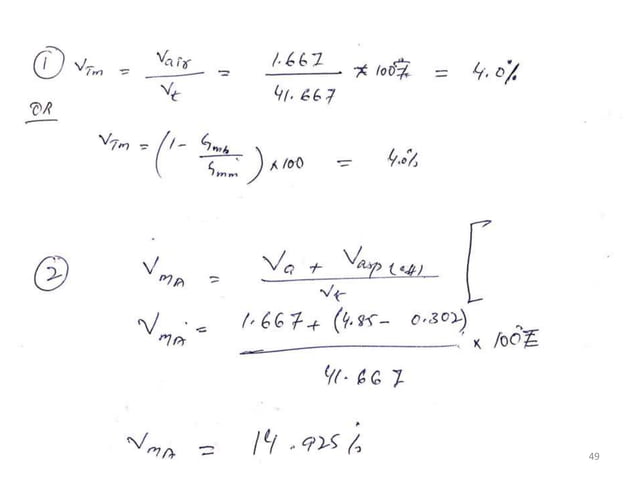 ① V_Tm = Vair / V_t = 1.667 / 41.667 * 100% = 4.0%
OR
V_Tm = (1 - G_mb / G_mm) × 100 = 4.0%
② V_MA = Va + Vasp(eff) / V_t [
V_MA = 1.667 + (4.85 - 0.302) / 41.667 × 100%
V_MA = 14.925%
49